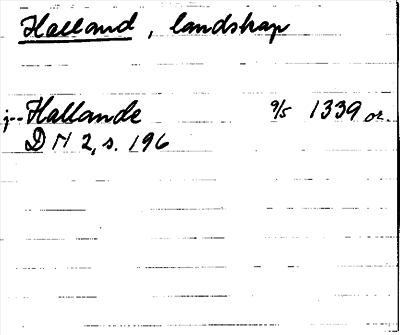 Halland, landskap
j--Hallande 9/5 1339 or.
DN 2, s. 196